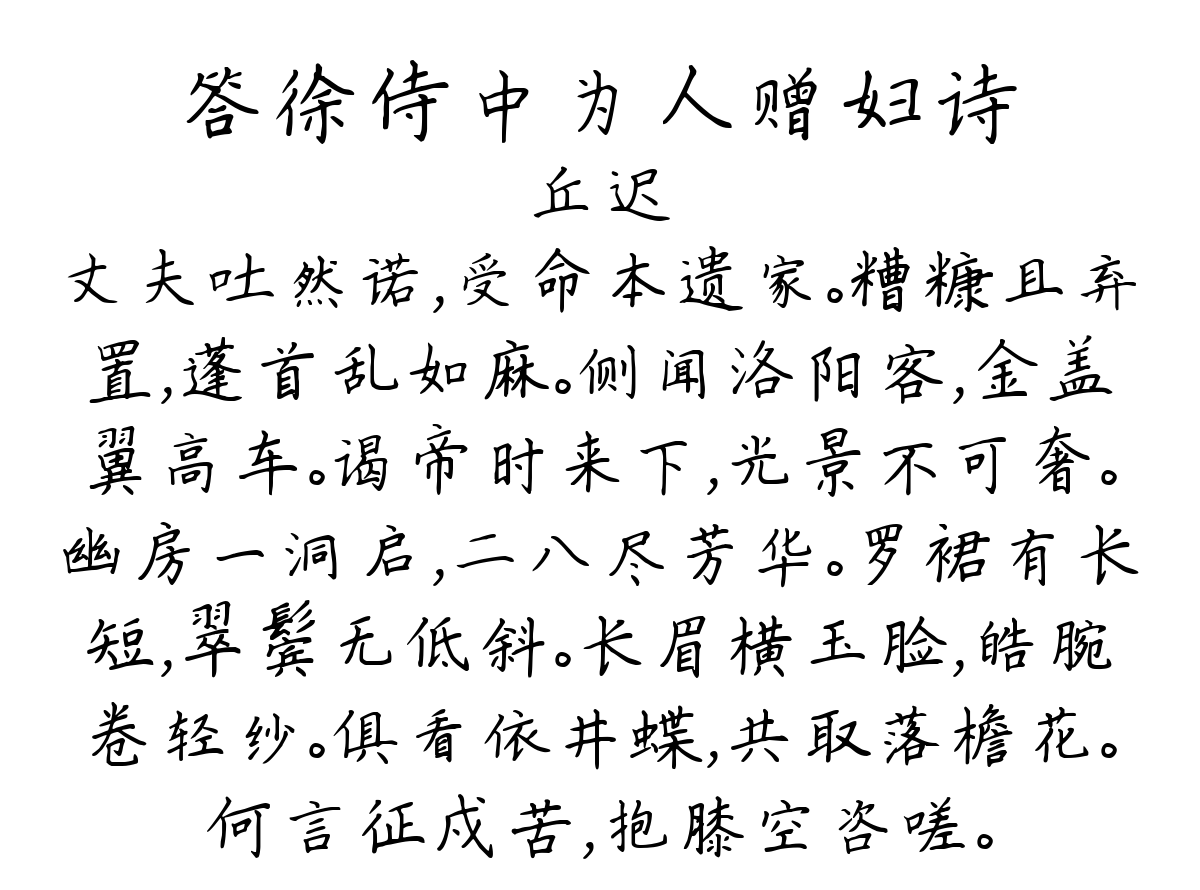 答徐侍中为人赠妇诗
丘迟
丈夫吐然诺,受命本遗家。糟糠且弃
置,蓬首乱如麻。侧闻洛阳客,金盖
翼高车。谒帝时来下,光景不可奢。
幽房一洞启,二八尽芳华。罗裙有长
短,翠鬓无低斜。长眉横玉脸,皓腕
卷轻纱。俱看依井蝶,共取落檐花。
何言征戍苦,抱膝空咨嗟。